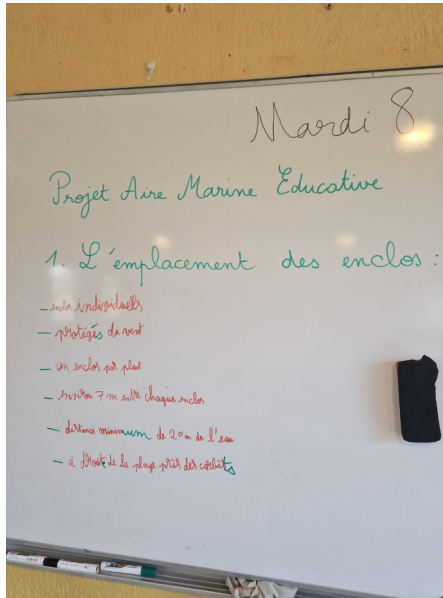 Mardi 8
Projet Aire Marine Educative
1. L'emplacement des enclos :
- enclos individuels
- protégés du vent
- un enclos par plant
- environ 7 m entre chaque enclos
- distance minimum de 20 m de l'eau
- à droite de la plage près des carbets